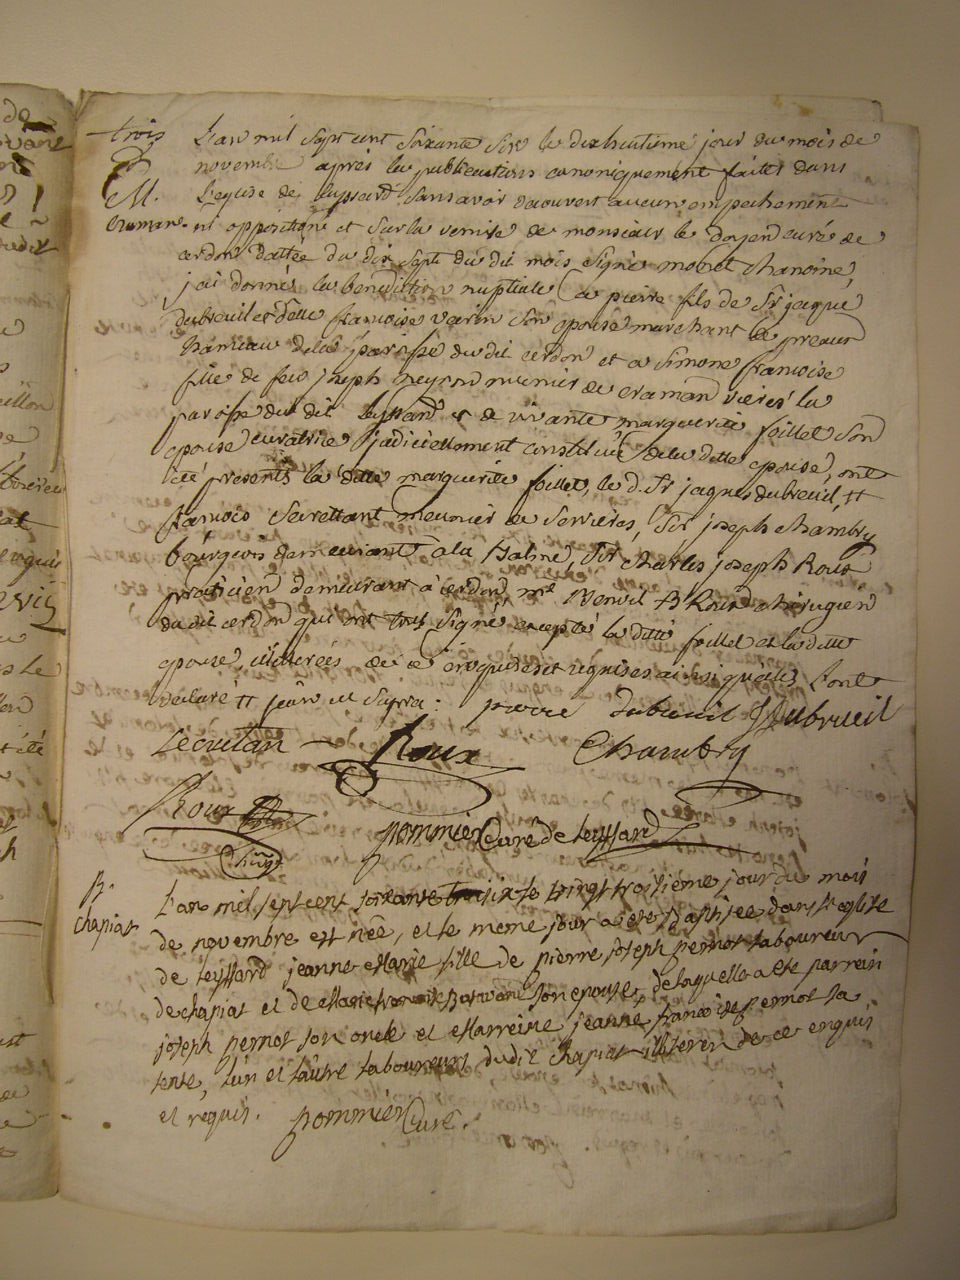 trois
M.
Craman.
L'an mil sept cent soixante six le dixhuitieme jour du mois de
novembre apres les publications canoniquement faites dans
L'eglise de leyssard sans avoir decouvert aucun empechement
ni opposition et sur la remise de monsieur le doyen curé de
cerdon dattée du dix sept du dit mois signé monet chanoine,
j'ai donné la benediction nuptiale a pierre fils de Sr jaque
dubreuil et delle francoise varin son epouse marchant
hameau de la paroisse du dit cerdon et a Simone francoise
fille de feu joseph neyron meunier de craman rieres la
paroisse du dit leyssard et de vivante marguerite foillet son
epouse curatrice judiciellement constituée de la ditte epouse, ont
été presents la ditte marguerite foillet, le d. Sr jaques dubreuil
francois meunier de Serrieres, Sr joseph chambry
bourgeois demeurant a la Balme, Sr charles joseph Roux
praticien demeurant a cerdon, mr Roux chirugien
du dit cerdon qui ont tous signé excepté la ditte foillet et la ditte
epouse, illiterées de ce enquises et requises ainsi qu'elles l'ont
declaré jour et supra: pierre dubreuil JDubrueil
Roux Chambry
Roux
Chirug
pommier Curé de leyssard
B.
chapiat
L'an mil sept cent soixante six le vingt troisiéme jour du mois
de novembre est née, et le meme jour a été Baptisée dans l'eglise
de leyssard jeanne Marie fille de pierre joseph pernot laboureur
de chapiat et de Marie son epouse, de laquelle a été parrein
joseph pernot son oncle et Marreine jeanne francoise pernot sa
tente, l'un et l'autre laboureurs dudit chapiat illiterés de ce enquis
et requis. pommier Curé.